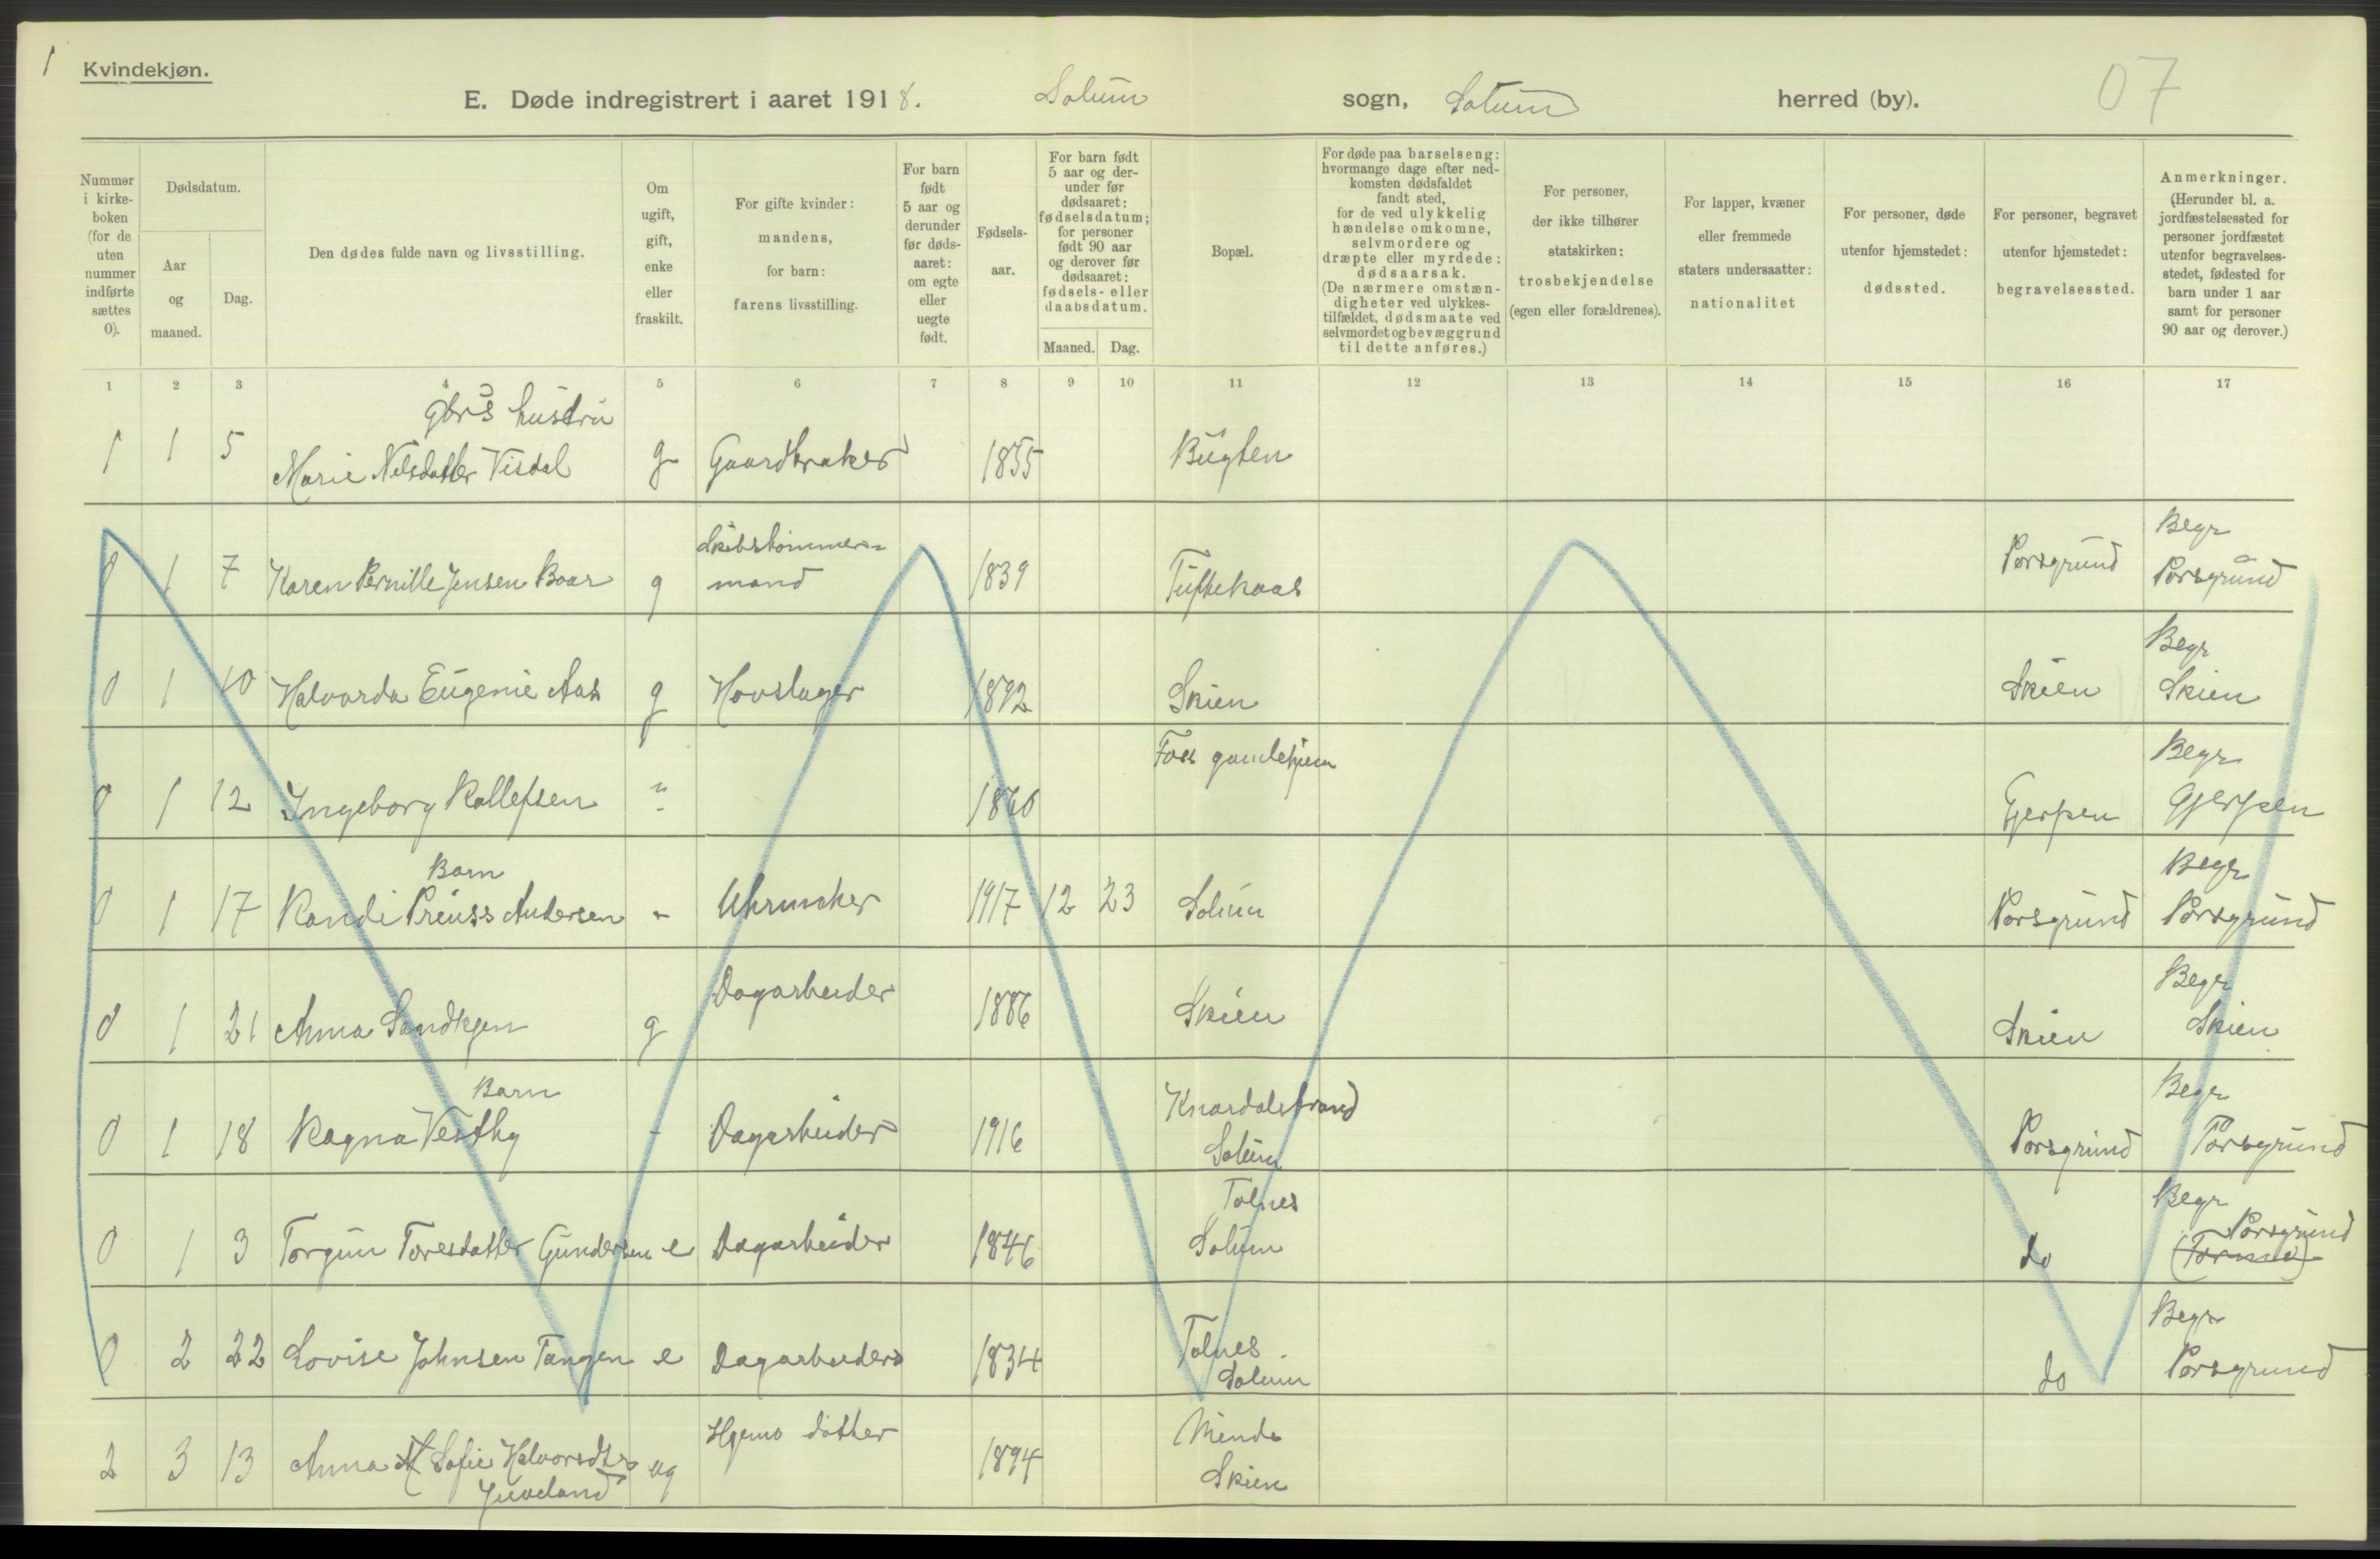 1
Kvindekjøn.
E. Døde indregistrert i aaret 1918. Solum sogn, Solum herred (by). 07
Nummer i kirkeboken (for de uten nummer indførte sættes 0).
Dødsdatum.
Aar og maaned.
Dag.
Den dødes fulde navn og livsstilling.
Om ugift, gift, enke eller fraskilt.
For gifte kvinder: mandens, for barn: farens livsstilling.
For barn født 5 aar og derunder før dødsaaret: om egte eller uegte født.
Fødselsaar.
For barn født 5 aar og derunder før dødsaaret: fødselsdatum; for personer født 90 aar og derover før dødsaaret: fødsels- eller daabsdatum.
Maaned. Dag.
Bopæl.
For døde paa barselseng: hvormange dage efter nedkomsten dødsfaldet fandt sted, for de ved ulykkelig hændelse omkomne, selvmordere og dræpte eller myrdede: dødsaarsak. (De nærmere omstændigheter ved ulykkestilfældet, dødsmaate ved selvmordet og bevæggrund til dette anføres.)
For personer, der ikke tilhører statskirken: trosbekjendelse (egen eller forældrenes).
For lapper, kvæner eller fremmede staters undersaatter: nationalitet
For personer, døde utenfor hjemstedet: dødssted.
For personer, begravet utenfor hjemstedet: begravelsessted.
Anmerkninger. (Herunder bl. a. jordfæstelsessted for personer jordfæstet utenfor begravelsesstedet, fødested for barn under 1 aar samt for personer 90 aar og derover.)
1 2 3 4 5 6 7 8 9 10 11 12 13 14 15 16 17
gbr's hustru
1 1 5 Marie Nilsdatter Visdal g Gaardbruker 1855 Bugten
0 1 7 Karen Pernille Jensen Boar g Skibstømmer=
mand 1839 Tuftekaas Porsgrund Begr
Porsgrund
0 1 10 Halvarda Eugenie Aas g Hovslager 1892 Skien Skien Begr
Skien
0 1 12 Ingeborg Rollefsen " Foss gamlehjem Gjerpen Begr
Gjerpen
Barn
0 1 17 Randi Preuss Andersen - Uhrmaker 1917 12 23 Solum Porsgrund Begr
Porsgrund
0 1 21 Anna g Dagarbeider 1886 Skien Skien Begr
Skien
Barn
0 1 18 Ragna Vestby - Dagarbeider 1916 Knardalstrand
Solum Porsgrund Begr
Porsgrund
0 1 3 Torgun Toresdatter Gundersen e Dagarbeider 1846 Tolnes
Solum do Begr
Porsgrund
0 2 22 Lovise Johnsen Tangen e Dagarbeider 1834 Tolnes
Solum do Begr
Porsgrund
2 3 13 Anna Sofie Halvorsdtr
Juveland ug datter 1894 Minde
Skien